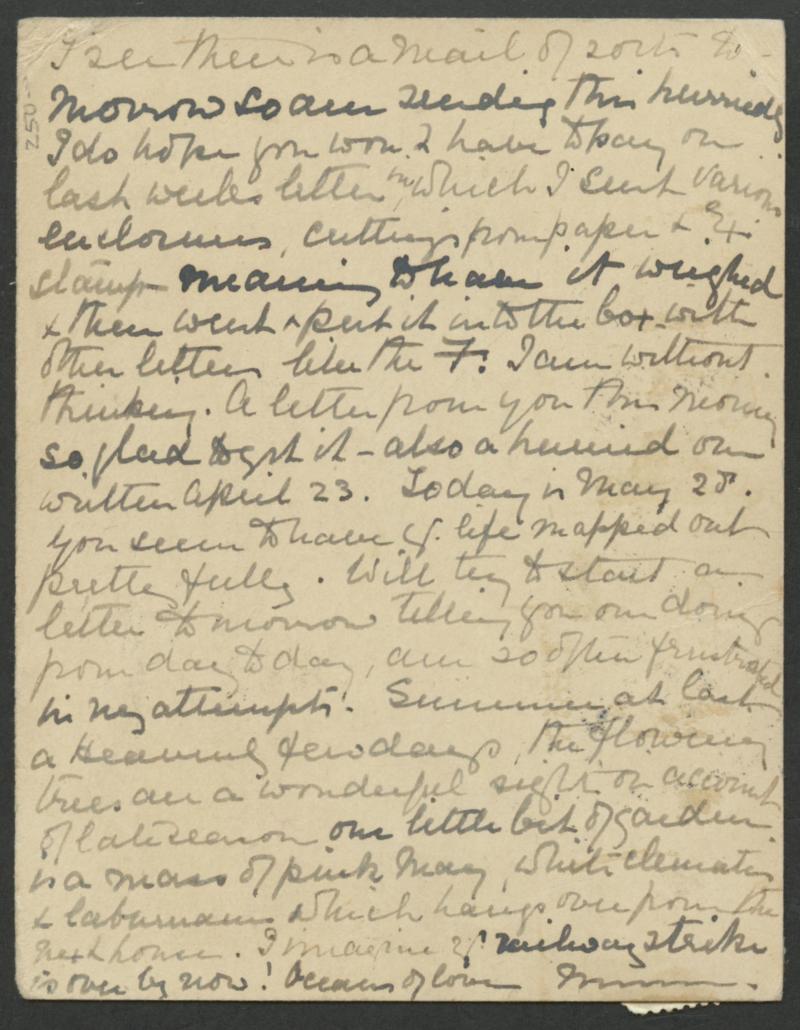 I see there is a mail of sorts to-
morrow so am sending this hurriedly
I do hope you won't have to pay on
last weeks letter in which I sent various
enclosures, cuttings from paper &
stamp meaning to have it weighed
& then went & put it into the box with
other letters like the F. I am without
thinking. A letter from you this morning
so glad to get it - also a hurried one
written April 23. Today is May 28.
you seem to have yr. life mapped out
pretty fully. Will try to start a
letter tomorrow telling you our doings
from day to day, am so often frustrated
in my attempts. Summer at last
a Heavenly few days, the flowering
trees are a wonderful sight on account
of late season our little bit of garden
is a mass of pink May, white clematis
& laburnum which hangs over from the
next house. I imagine yr railway strike
is over by now! Oceans of love
250-